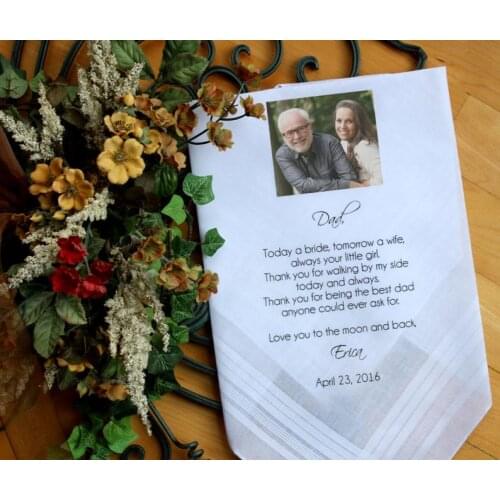 Dad,
Today a bride, tomorrow a wife,
always your little girl.
Thank you for walking by my side
today and always.
Thank you for being the best dad
anyone could ever ask for.
Love you to the moon and back,
Erica
April 23, 2016